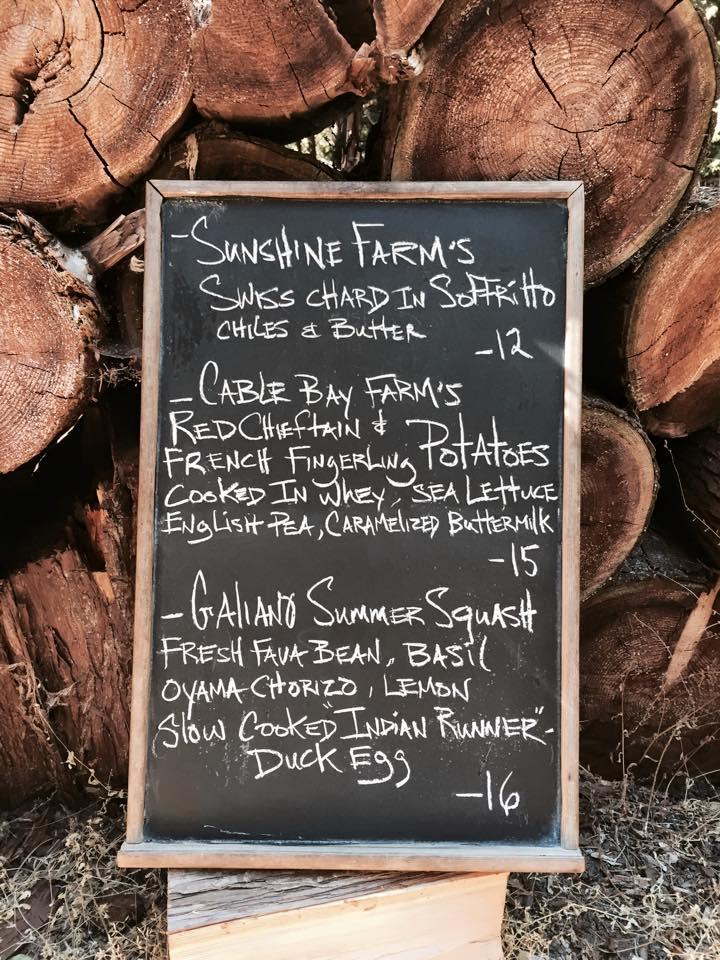 - Sunshine Farm's
Swiss chard in Soffritto
chiles & Butter
-12
- Cable Bay Farm's
Red Chieftain &
French Fingerling Potatoes
Cooked In Whey, Sea Lettuce
English Pea, Caramelized Buttermilk
-15
- Galiano Summer Squash
Fresh Fava Bean, Basil
Oyama Chorizo, Lemon
Slow Cooked "Indian Runner"-
Duck Egg
-16